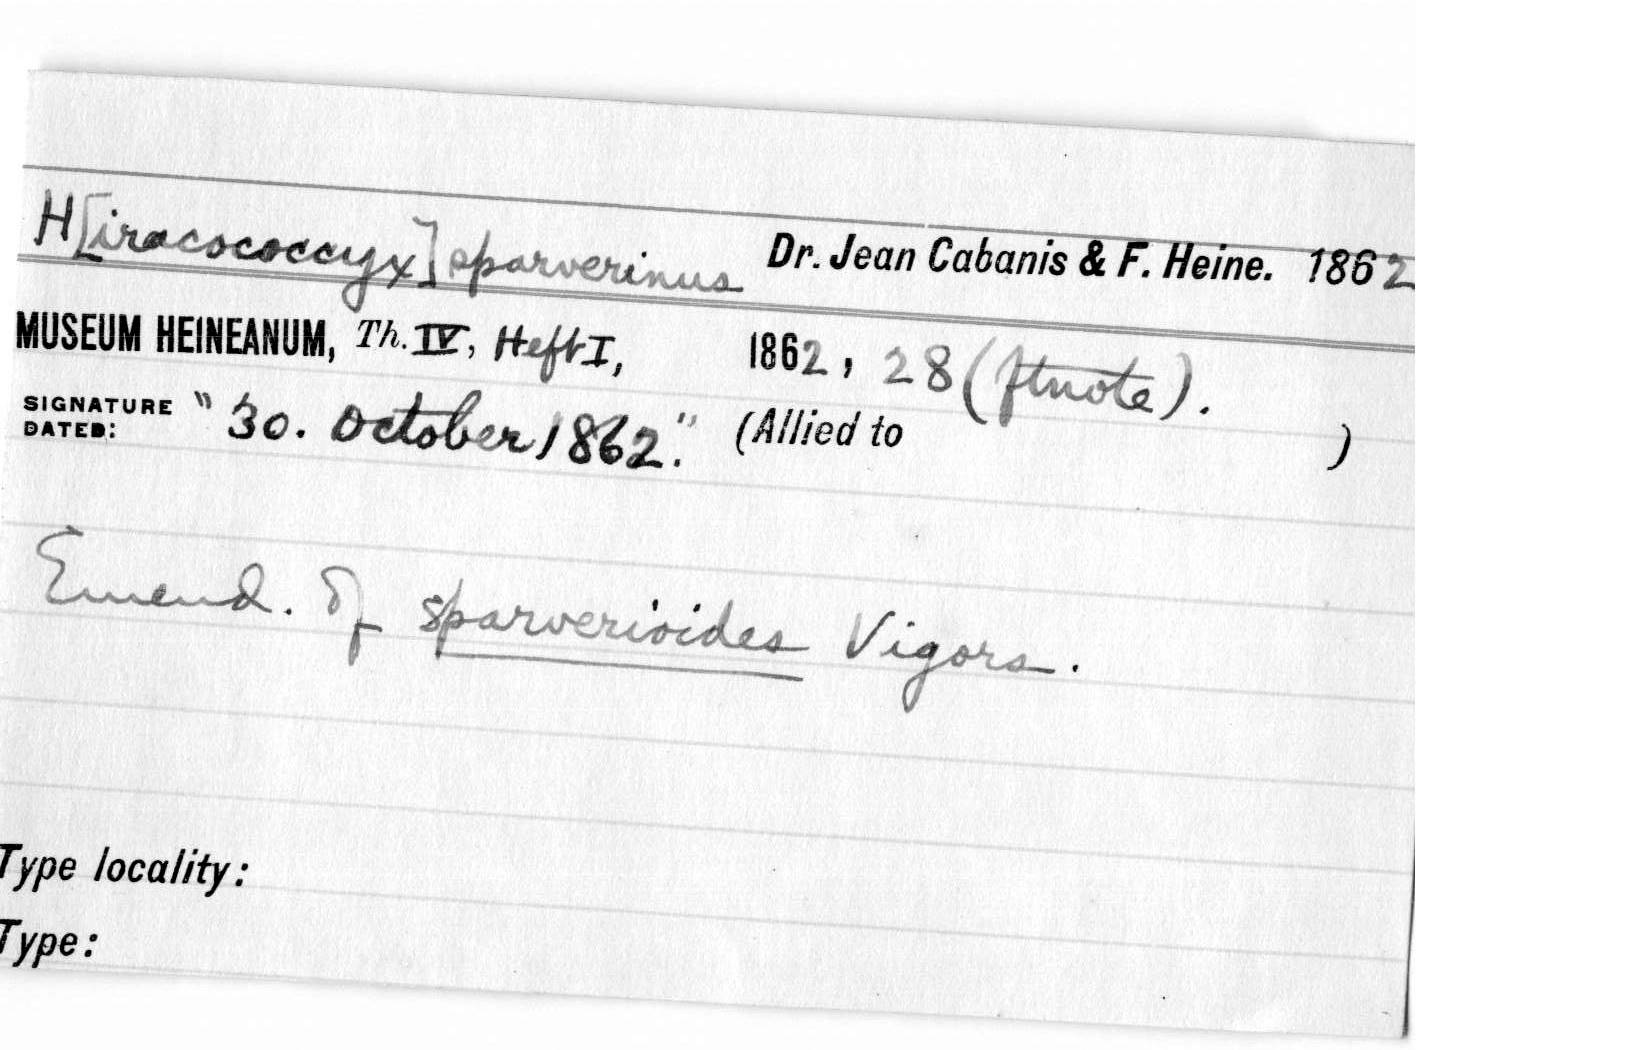 H[iracococcyx] sparverinus Dr. Jean Cabanis & F. Heine. 1862
MUSEUM HEINEANUM, Th. IV, Heft I, 1862, 28 (ftnote).
SIGNATURE DATED: "30. October 1862." (Allied to )
Emend. of sparverioides Vigors.
Type locality:
Type: